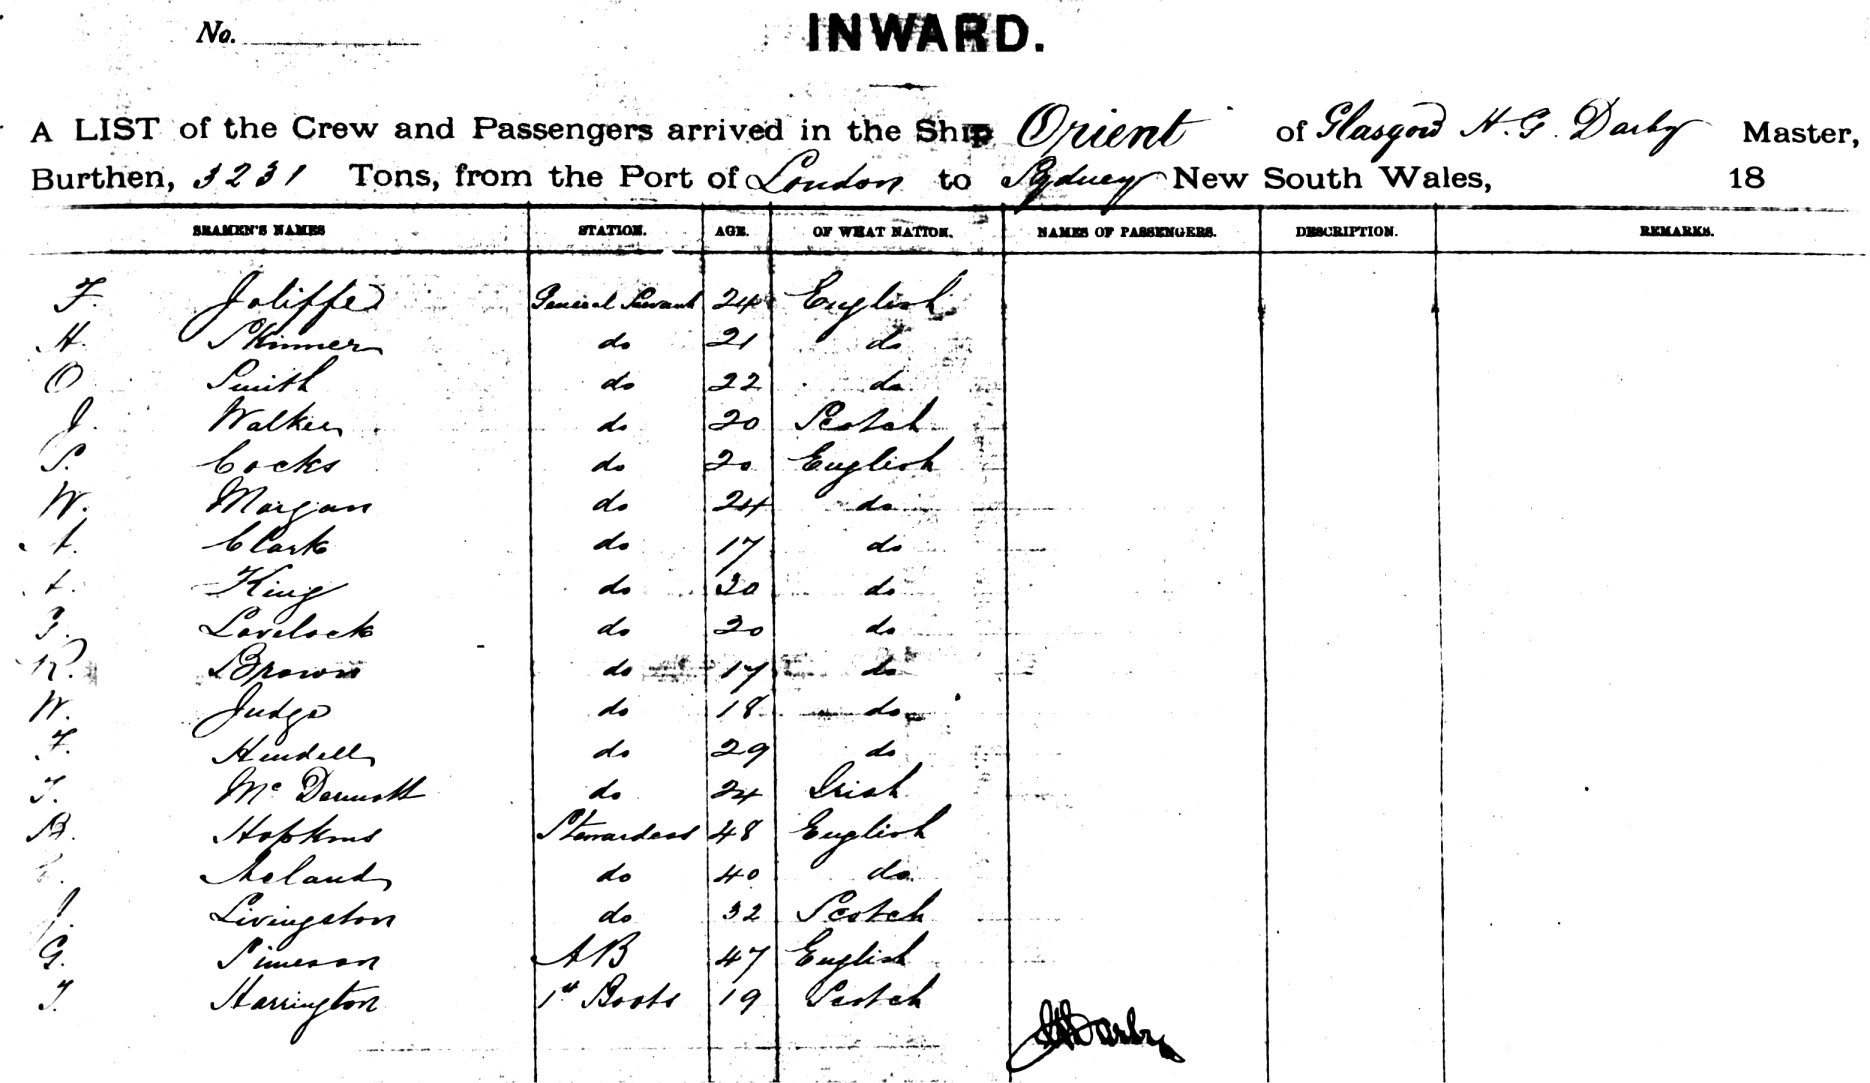 No.
INWARD.
A LIST of the Crew and Passengers arrived in the Ship Orient of Glasgow H. G. Darby Master,
Burthen, 3231 Tons, from the Port of London to Sydney New South Wales, 18
SEAMEN'S NAMES STATION. AGE. OF WHAT NATION. NAMES OF PASSENGERS. DESCRIPTION. REMARKS.
F. Joliffe General Servant 24 English
H. Skinner do 21 do
O Smith do 22 do
J. Walker do 20 Scotch
S. Cocks do 20 English
W. Morgan do 24 do
Clark do 17 do
King do 30 do
Lovelock do 20 do
R. Brown do 17 do
W. Judge do 18 do
F. Hendell do 29 do
T. Mc Dermott do 24 Irish
B. Hopkins Stewardess 48 English
Acland do 40 do
J. Livingston do 32 Scotch
G. Simeson AB 47 English
T. Harrington 1st Boots 19 Scotch
Darby